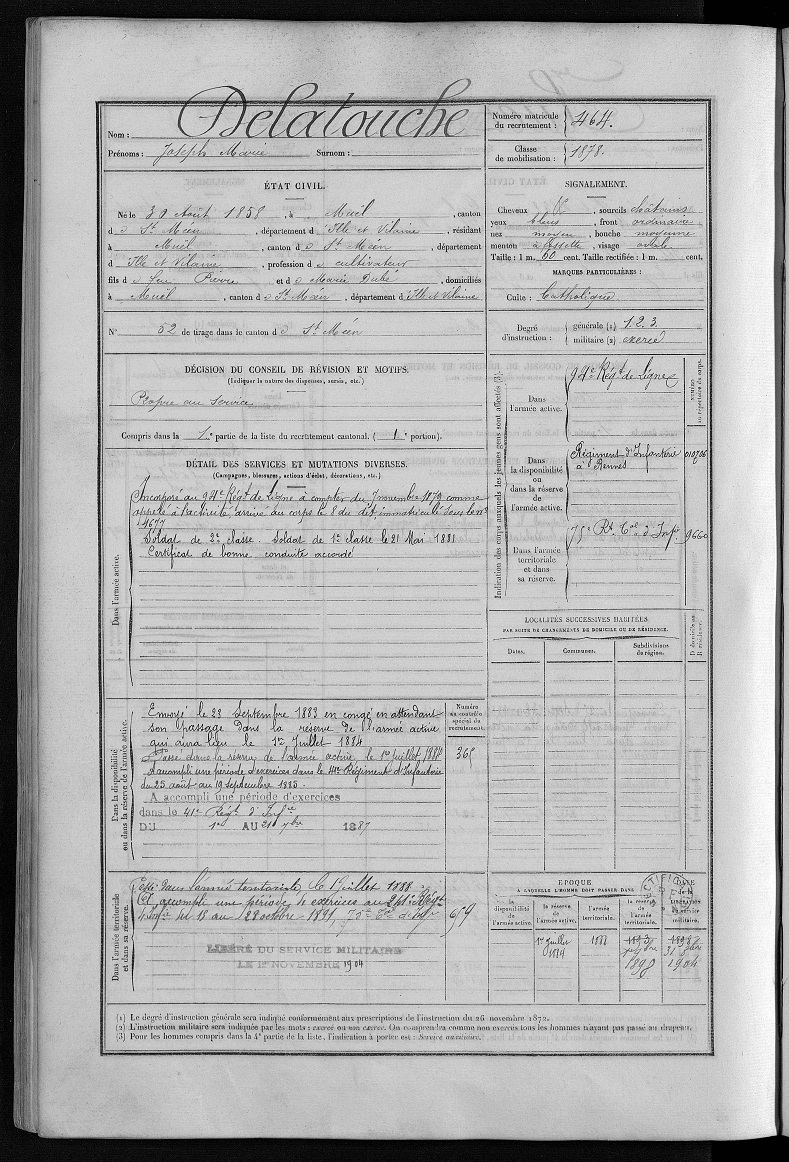 Nom : Delatouche
Prénoms : Joseph Marie Surnom :
Numéro matricule du recrutement : 464.
Classe de mobilisation : 1878.
ÉTAT CIVIL.
Né le 30 Août 1858, à Muel, canton
d St Méen, département d'Ille et Vilaine, résidant
à Muël, canton d St Méen, département
d'Ille et Vilaine, profession de cultivateur
fils d feu Pierre et d Marie Dubé, domiciliés
à Muël, canton d St Méen, département d'Ille et Vilaine
N° 52 de tirage dans le canton d St Méen
SIGNALEMENT.
Cheveux sourcils châtains
yeux bleus, front ordinaire
nez moyen, bouche moyenne
menton à fossette, visage ovale
Taille : 1 m. 60 cent. Taille rectifiée : 1 m. cent.
MARQUES PARTICULIÈRES :
Culte : Catholique
Degré d'instruction : générale (1) 1.2.3.
militaire (2) exercé
DÉCISION DU CONSEIL DE RÉVISION ET MOTIFS.
(Indiquer la nature des dispenses, sursis, etc.)
Propre au service
Compris dans la 1re partie de la liste du recrutement cantonal. (1 portion).
DÉTAIL DES SERVICES ET MUTATIONS DIVERSES.
(Campagnes, blessures, actions d'éclat, décorations, etc.)
Dans l'armée active.
Incorporé au 94e Régt de Ligne à compter du 7 novembre 1879 comme
appelé à l'activité, arrivé au corps le 8 du dit, immatriculé sous le n°
4677
Soldat de 2e classe. Soldat de 1re classe le 21 Mai 1881
Certificat de bonne conduite accordé
Indication des corps auxquels les jeunes gens sont affectés (3).
NUMÉRO au répertoire du corps.
Dans l'armée active.
94e Régt de Ligne
Dans la disponibilité ou dans la réserve de l'armée active.
Régiment d'Infanterie
à Rennes
010706
Dans l'armée territoriale et dans sa réserve.
75e Rt d'Infie
9660
LOCALITÉS SUCCESSIVES HABITÉES
PAR SUITE DE CHANGEMENTS DE DOMICILE OU DE RÉSIDENCE.
Dates. Communes. Subdivisions de région. D domicile ou R résidence.
Dans la disponibilité ou dans la réserve de l'armée active.
Numéro au contrôle spécial du recrutement.
Envoyé le 23 Septembre 1883 en congé en attendant
son passage dans la réserve de l'armée active
qui aura lieu le 1er Juillet 1884
Passé dans la réserve de l'armée active le 1er Juillet 1884
A accompli une période d'exercices dans le 41e Régiment d'Infanterie
du 25 août au 19 Septembre 1885.
A accompli une période d'exercices
dans le 41e Régt d'Infie
DU 1er AU 21 7bre 1887
Dans l'armée territoriale et dans sa réserve.
Passé dans l'armée territoriale le 1er Juillet 1888
A accompli une période d'exercices au
d'Infie du 18 au 28 octobre 1891 75e d'Infie
659
LIBÉRÉ DU SERVICE MILITAIRE
LE 1er NOVEMBRE 1904
EPOQUE
A LAQUELLE L'HOMME DOIT PASSER DANS
la disponibilité de l'armée active. la réserve de l'armée active. l'armée territoriale. la réserve de l'armée territoriale. DATE de la LIBÉRATION du service militaire.
1er Juillet 1884
1888
1893
1898
1904
(1) Le degré d'instruction générale sera indiqué conformément aux prescriptions de l'instruction du 26 novembre 1872.
(2) L'instruction militaire sera indiquée par les mots : exercé ou non exercé. On comprendra comme non exercés tous les hommes n'ayant pas passé au drapeau.
(3) Pour les hommes compris dans la 4e partie de la liste, l'indication à porter est : Service auxiliaire.